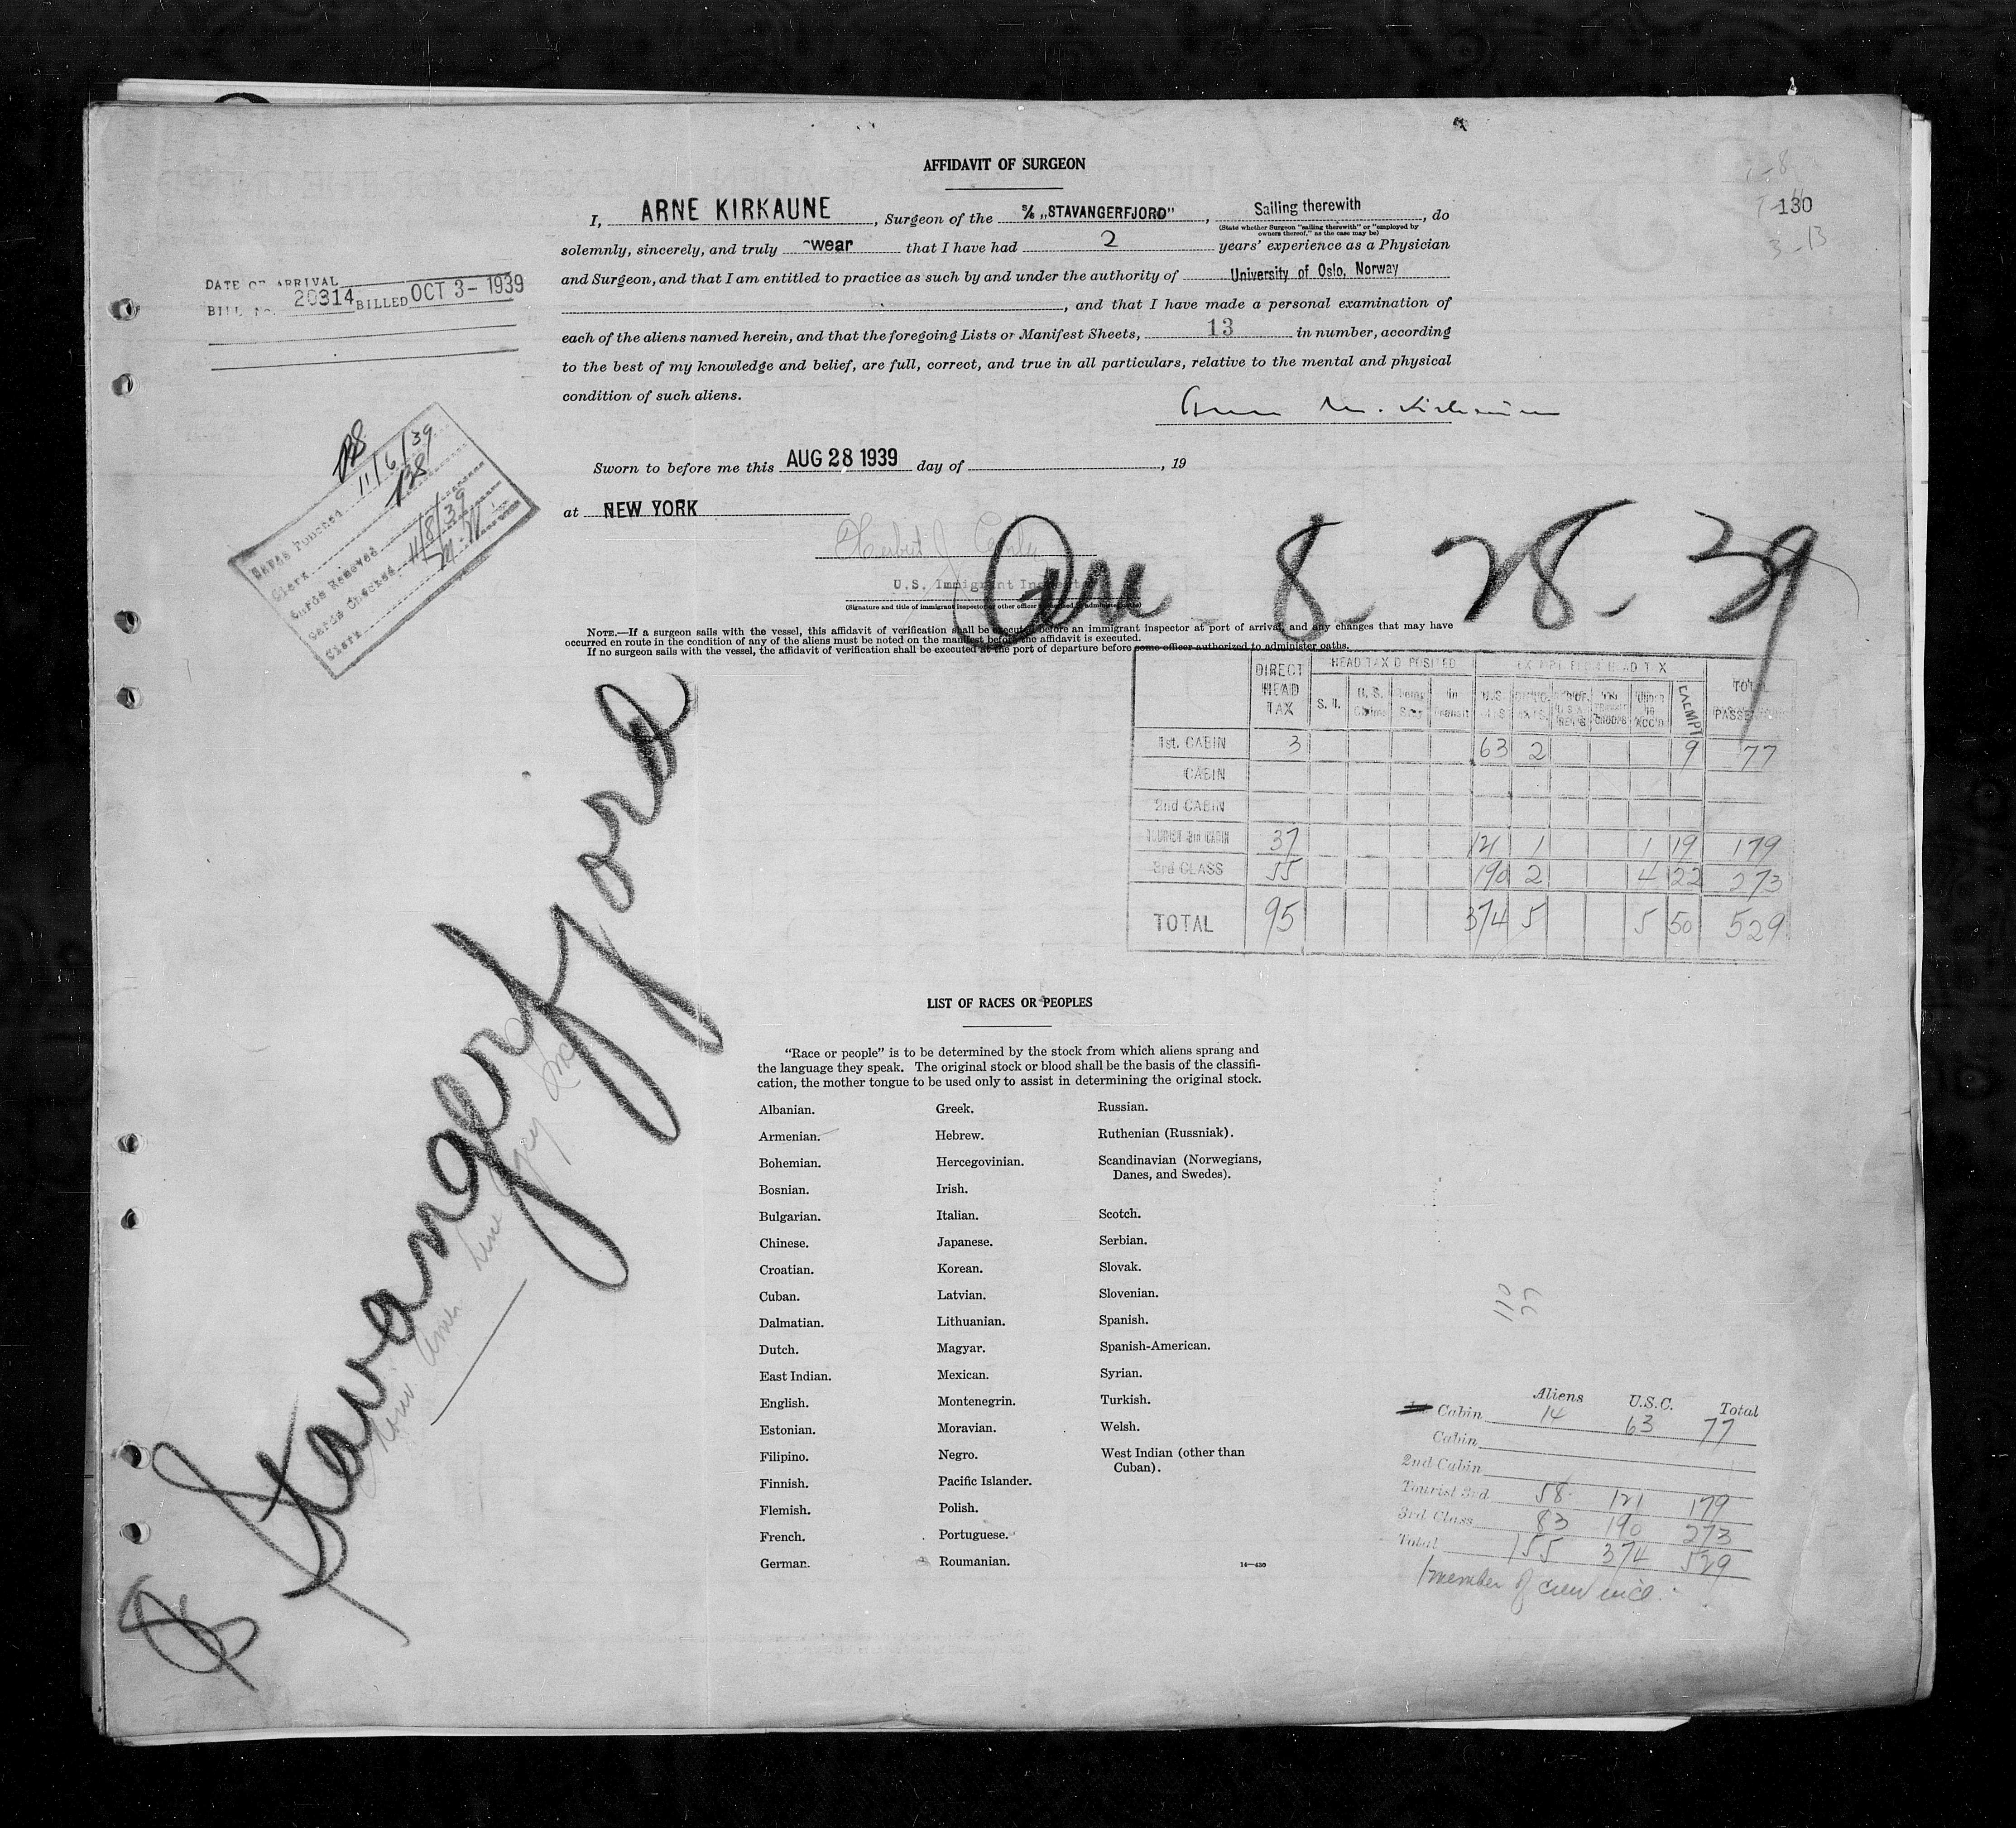 AFFIDAVIT OF SURGEON
130
3-13
I, ARNE KIRKAUNE, Surgeon of the S/S „STAVANGERFJORD", Sailing therewith, do
(State whether Surgeon "sailing therewith" or "employed by
owners thereof," as the case may be)
solemnly, sincerely, and truly swear that I have had 2 years' experience as a Physician
and Surgeon, and that I am entitled to practice as such by and under the authority of University of Oslo, Norway
, and that I have made a personal examination of
each of the aliens named herein, and that the foregoing Lists or Manifest Sheets, 13 in number, according
to the best of my knowledge and belief, are full, correct, and true in all particulars, relative to the mental and physical
condition of such aliens.
DATE OF ARRIVAL
BILL No. 20314 BILLED OCT 3-1939
Arne M. Kirkaune
Sworn to before me this AUG 28 1939 day of , 19
at NEW YORK
Cards Punched 11/6/39
Clerk
Cards Removed
Cards Checked 11/8/39
Clerk
Herbert J.
U.S. Immigrant Inspector
(Signature and title of immigrant inspector or other officer authorized to administer oaths)
Arr. 8-28-39
NOTE.—If a surgeon sails with the vessel, this affidavit of verification shall be executed before an immigrant inspector at port of arrival, and any changes that may have
occurred en route in the condition of any of the aliens must be noted on the manifest before the affidavit is executed.
If no surgeon sails with the vessel, the affidavit of verification shall be executed at the port of departure before some officer authorized to administer oaths.
DIRECT HEAD TAX HEAD TAX DEPOSITED EXEMPT FROM HEAD TAX TOTAL PASSENGERS
S. I. U. S. Claims Temp Stay In Transit U.S. CITS EXEMPT
1st. CABIN 3 63 2 9 77
CABIN
2nd CABIN
TOURIST 3rd CABIN 37 121 1 1 19 179
3rd CLASS 55 190 2 4 22 273
TOTAL 95 374 5 5 50 529
Stavangerfjord
Norw. Amer. Line Agcy Inc
LIST OF RACES OR PEOPLES
"Race or people" is to be determined by the stock from which aliens sprang and
the language they speak. The original stock or blood shall be the basis of the classifi-
cation, the mother tongue to be used only to assist in determining the original stock.
Albanian.
Armenian.
Bohemian.
Bosnian.
Bulgarian.
Chinese.
Croatian.
Cuban.
Dalmatian.
Dutch.
East Indian.
English.
Estonian.
Filipino.
Finnish.
Flemish.
French.
German.
Greek.
Hebrew.
Hercegovinian.
Irish.
Italian.
Japanese.
Korean.
Latvian.
Lithuanian.
Magyar.
Mexican.
Montenegrin.
Moravian.
Negro.
Pacific Islander.
Polish.
Portuguese.
Roumanian.
Russian.
Ruthenian (Russniak).
Scandinavian (Norwegians,
Danes, and Swedes).
Scotch.
Serbian.
Slovak.
Slovenian.
Spanish.
Spanish-American.
Syrian.
Turkish.
Welsh.
West Indian (other than
Cuban).
14—430
110
77
Aliens U.S.C. Total
Cabin 14 63 77
Cabin
2nd Cabin
Tourist 3rd 58 121 179
3rd Class 83 190 273
Total 155 374 529
1 member of crew incl.